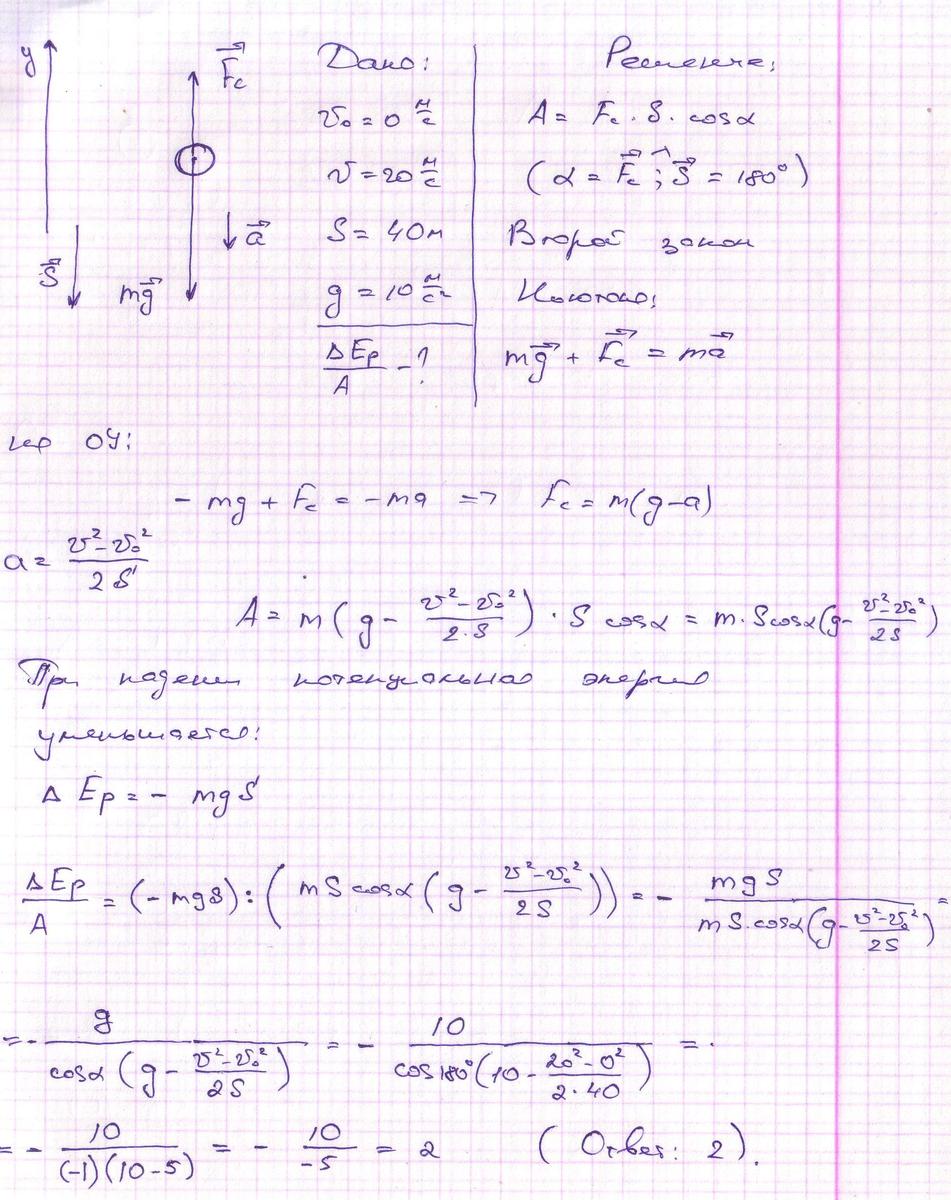 y
F⃗c
a⃗
S⃗
mg⃗
Дано:
v₀ = 0 м/с
v = 20 м/с
S = 40 м
g = 10 м/с²
ΔEp/A - ?
Решение:
A = Fc · S · cosα
(α = F⃗c ; S⃗ = 180°)
Второй закон
Ньютона:
mg⃗ + F⃗c = ma⃗
OY:
- mg + Fc = - ma => Fc = m(g-a)
a = (v² - v₀²)/(2S)
A = m(g - (v² - v₀²)/(2·S)) · S cosα = m·S cosα(g - (v² - v₀²)/(2S))
При падении потенциальная энергия
уменьшается:
ΔEp = - mgS
ΔEp/A = (-mgS) : (mS cosα (g - (v² - v₀²)/(2S))) = - mgS/(mS·cosα(g - (v² - v₀²)/(2S))) =
= - g/(cosα (g - (v² - v₀²)/(2S))) = - 10/(cos180°(10 - (20² - 0²)/(2·40))) =
= - 10/((-1)(10-5)) = - 10/(-5) = 2 (Ответ: 2).